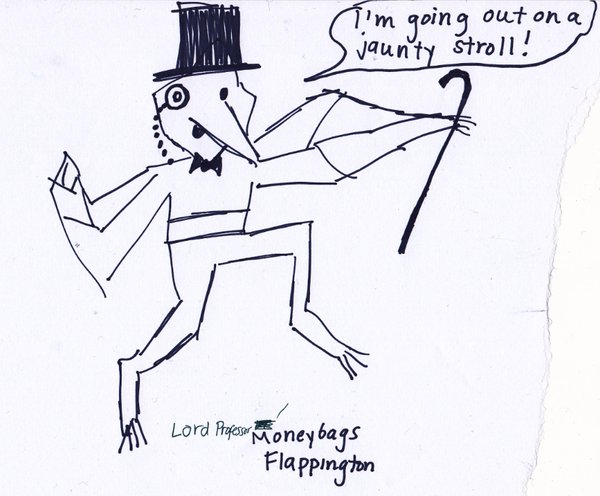 I'm going out on a
jaunty stroll!
Lord Professor Moneybags
Flappington